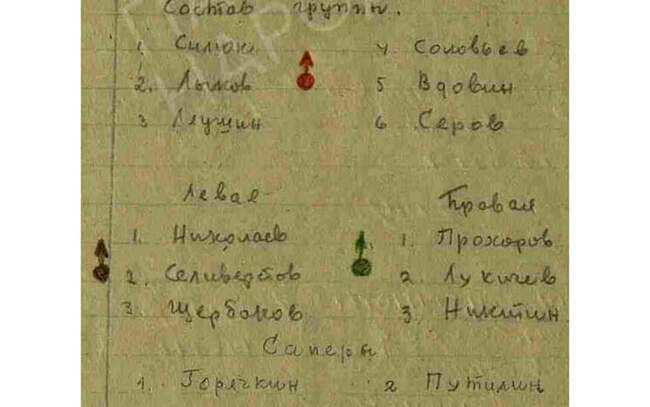 Состав группы.
1. Силюк 4. Соловьев
2. Лыков 5 Вдовин
3 Леушин 6 Серов
Левая Правая
1. Николаев 1. Прохоров
2. Селиверстов 2. Лукичев
3 Щербоков 3. Никитин
Саперы
1. Горячкин 2 Путилин